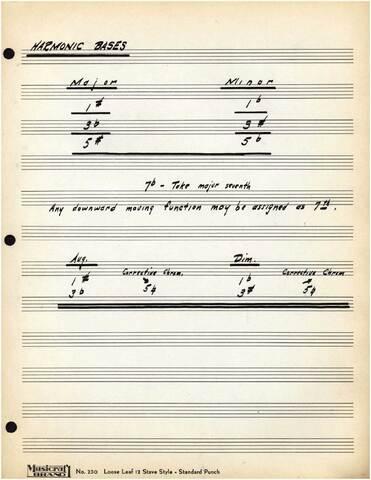 HARMONIC BASES
Major Minor
1# 1b
3b 3#
5# 5b
7b - Take major seventh
Any downward moving function may be assigned as 7th.
Aug. Dim.
1# Corrective Chrom. 1b Corrective Chrom
3b 5♮ 3# 5♮
Musicraft BRAND No. 230 Loose Leaf 12 Stave Style - Standard Punch